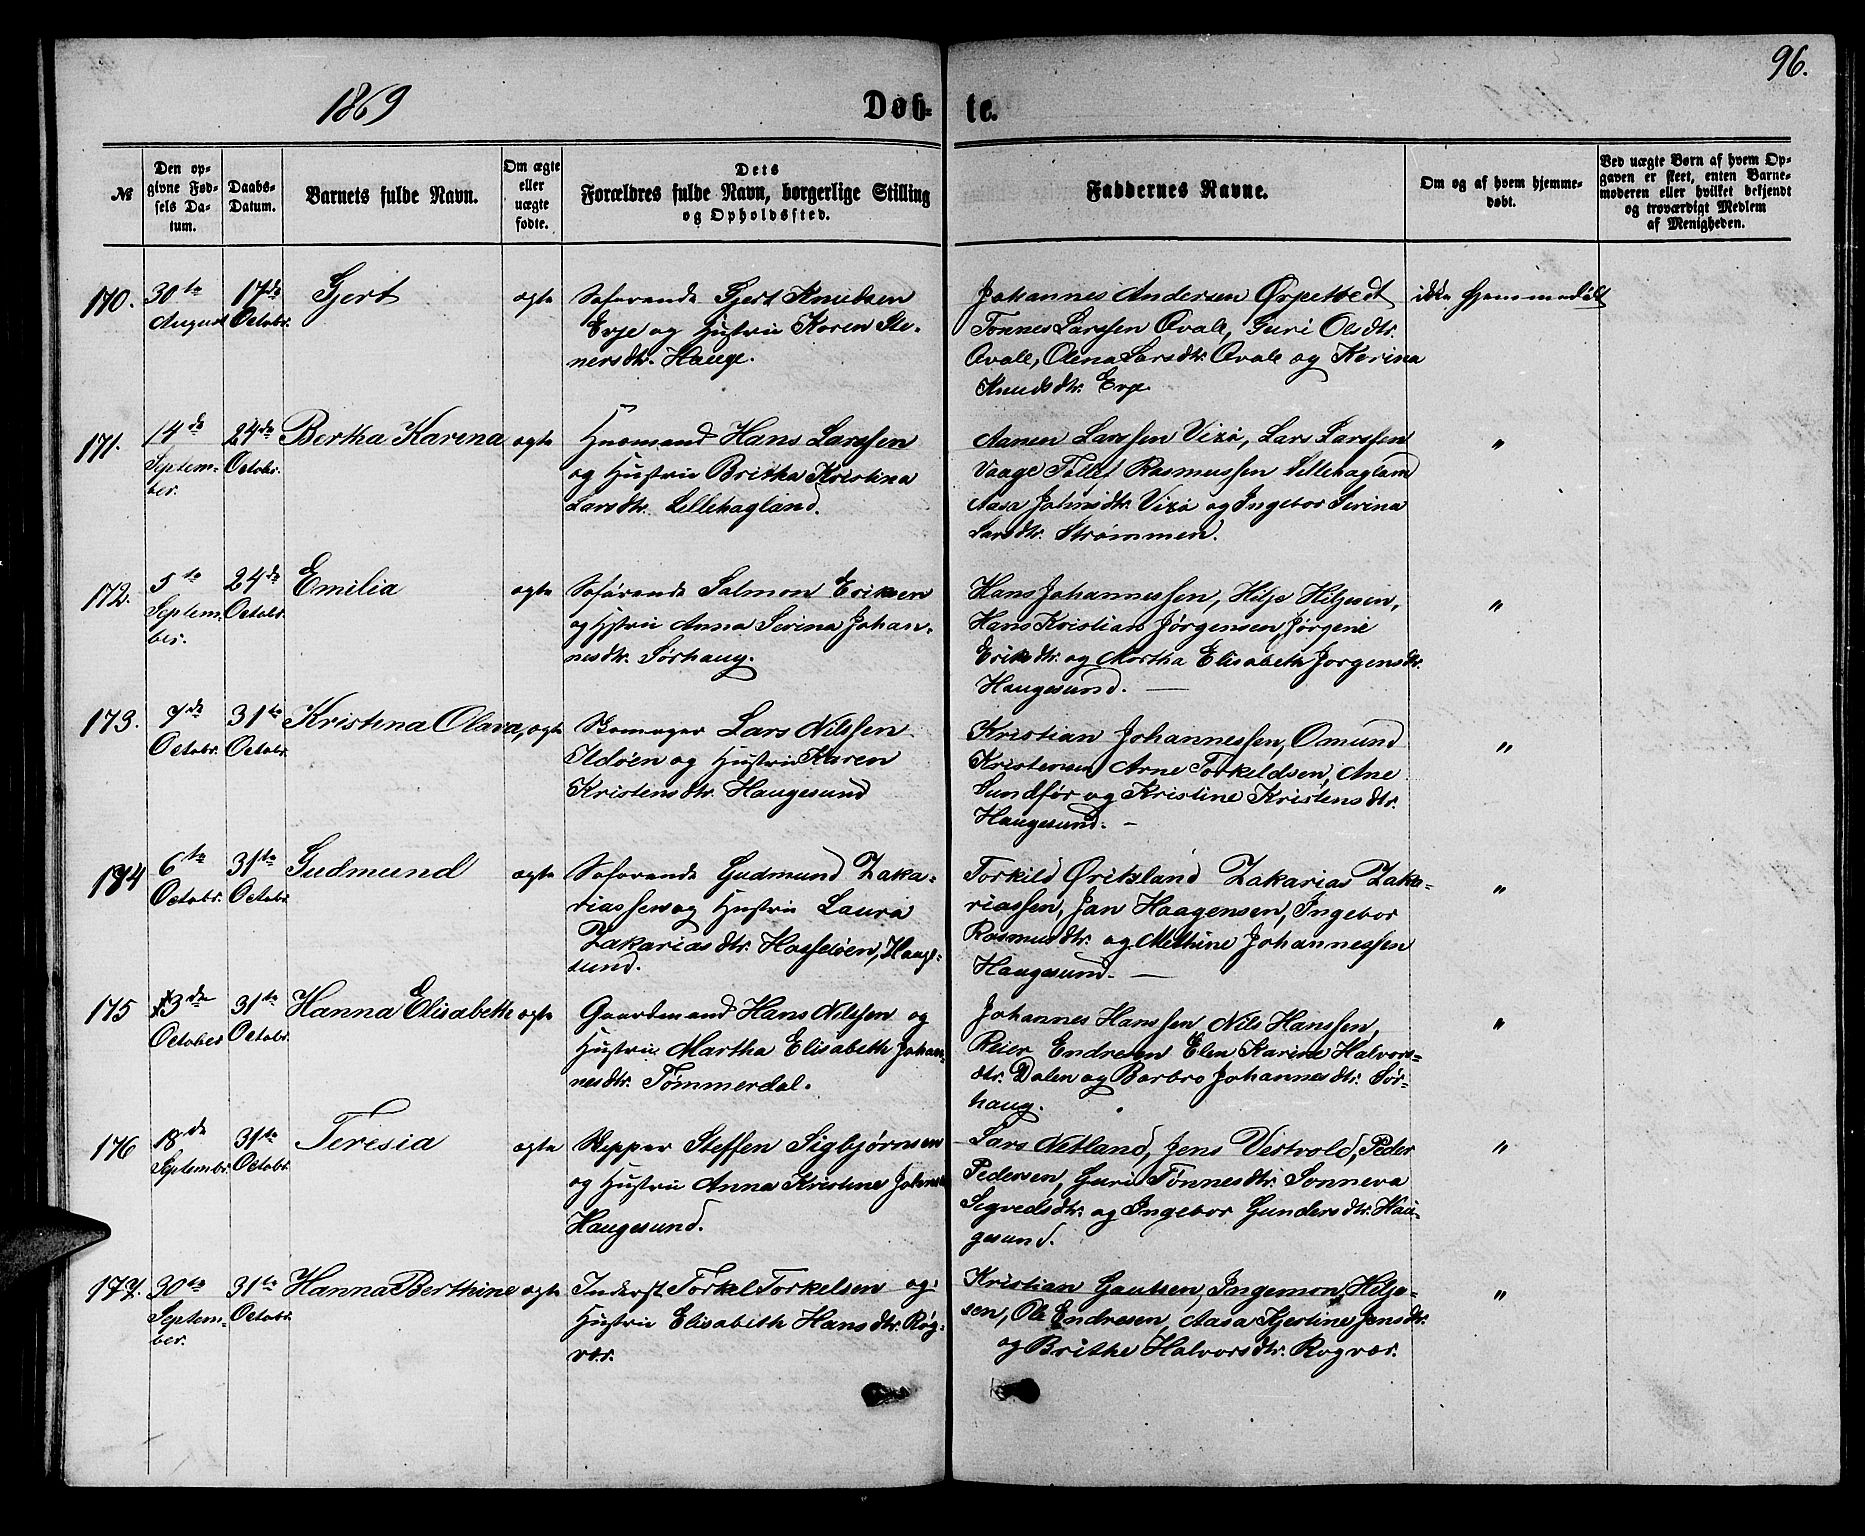 96.
1869
Døb- te.
№
Den opgivne Fødsels Datum.
Daabs-Datum.
Barnets fulde Navn.
Om ægte eller uægte fødte.
Dets Forældres fulde Navn, borgerlige Stilling og Opholdssted.
Faddernes Navne.
Om og af hvem hjemmedøbt.
Ved uægte Børn af hvem Opgaven er skeet, enten Barnemoderen eller hvilket bekjendt og troværdigt Medlem af Menigheden.
170. 30te August 17de Octobr. Gjert ægte
Søfarende Gjert Knudsen
Erje og Hustrue Karen Ste-
nersdtr. Hauge.
Johannes Andersen
Tønnes Larssen Qvale, Guri Olsdtr.
Qvale, Olena Larsdtr. Qvale og Karina
Knudsdtr. Erje
ikke hjemmedøbt
171. 14de September. 24de Octobr. Bertha Karena ægte
Huusmand Hans Larssen
og Hustrue Britha Kristina
Larsdtr. Lillehagland.
Aanen Larssen Vizø, Lars Larssen
Vaage Tollef Rasmussen Lillehagland
Aasa Johnsdtr. Vizø og Ingebor Serina
Larsdtr. Strømmen.
"
172. 5te September. 24de Octobr. Emilia ægte
Søfarende Salmon Eriksen
og Hstrue Anna Serina Johan-
nesdtr. Sørhaug.
Hans Johannessen, Hilje Hiljesen,
Hans Kristian Jørgensen, Jørgene
Eriksdtr. og Martha Elisabeth Jørgensdtr.
Haugesund. —
"
173. 7de Octobr. 31te Octobr. Kristina Olava, ægte
Skomager Lars Nilssen
Ildøen og Hustrue Karen
Kristensdtr. Haugesund
Kristian Johannessen, Omund
Kristensen, Arne Torkeldsen, Ane
Sundfør og Kristine Kristensdtr.
Haugesund. —
"
174 6te Octobr. 31te Octobr. Gudmund ægte
Søfarende Gudmund Zaka-
riassen og Hustrue Laura
Zakariasdtr. Hasseløen, Hauge-
sund.
Torkild Øritsland Zakarias Zaka-
riassen, Jan Haagensen, Ingebor
Rasmusdtr. og Methine Johannessen
Haugesund. —
"
175 3de October 31te Octobr. Hanna Elisabeth ægte
Gaardmand Hans Nilssen og
Hustrue Martha Elisabeth Johan-
nesdtr. Tømmerdal.
Johannes Hanssen, Nils Hanssen,
Reier Endresen Elen Karine Halvors-
dtr. Dalen og Barbro Johannesdtr. Sør-
haug.
"
176 18de Septembr. 31te Octobr. Teresia ægte
Skipper Steffen Sigbjørnsen
og Hustrue Anna Kristine
Haugesund.
Lars Netland, Jens Vestvold, Peder
Pedersen, Guri Tønnesdtr. Sonneva
Segvedsdtr. og Ingebor Gundersdtr. Hau-
gesund.
"
177. 30te September. 31te Octobr. Hanna Berthine ægte
Inderst Torkel Torkelsen og
Hustrue Elisabeth Hansdtr. Røg-
vær.
Kristian Gautsen, Ingemon Hilje-
sen, Ole Endresen, Aasa Kjestine Jensdtr.
og Brithe Halvorsdtr. Rogvær.
"